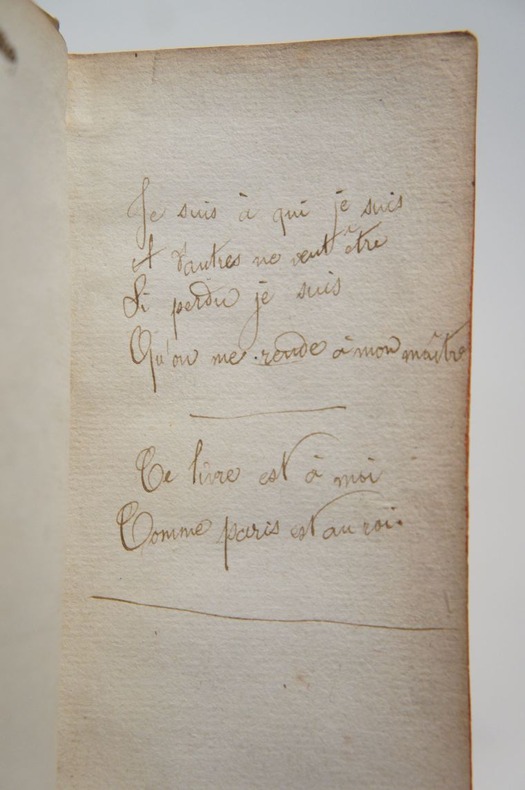 Je suis à qui je suis
A d'autres ne veut être
Si perdu je suis
Qu'on me rende à mon maître
Ce livre est à moi
Comme paris est au roi.